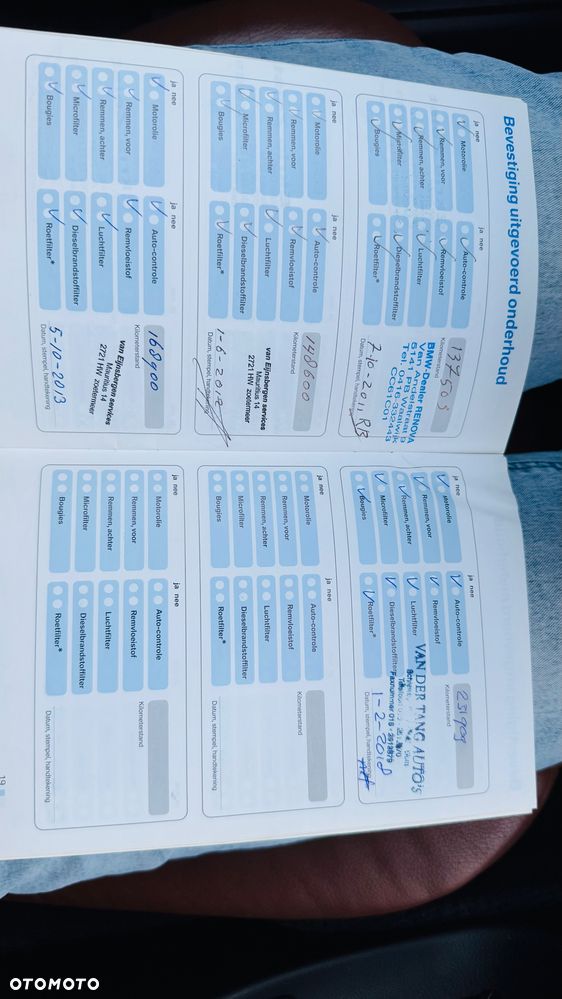 Bevestiging uitgevoerd onderhoud
ja nee
Motorolie
Remmen, voor
Remmen, achter
Microfilter
Bougies
ja nee
Auto-controle
Remvloeistof
Luchtfilter
Dieselbrandstoffilter
Roetfilter*
Kilometerstand
137503
BMW-Dealer RENOVA
Van Andelstraat 5
5141 PB Waalwijk
Tel. 0416-332443
CC61C01
7-10-2011
Datum, stempel, handtekening
ja nee
Motorolie
Remmen, voor
Remmen, achter
Microfilter
Bougies
ja nee
Auto-controle
Remvloeistof
Luchtfilter
Dieselbrandstoffilter
Roetfilter*
Kilometerstand
148600
van Eijnsbergen services
Mauritius 14
2721 HW zoetermeer
1-6-2012
Datum, stempel, handtekening
ja nee
Motorolie
Remmen, voor
Remmen, achter
Microfilter
Bougies
ja nee
Auto-controle
Remvloeistof
Luchtfilter
Dieselbrandstoffilter
Roetfilter*
Kilometerstand
168900
van Eijnsbergen services
Mauritius 14
2721 HW zoetermeer
5-10-2013
Datum, stempel, handtekening
ja nee
Motorolie
Remmen, voor
Remmen, achter
Microfilter
Bougies
ja nee
Auto-controle
Remvloeistof
Luchtfilter
Dieselbrandstoffilter
Roetfilter*
Kilometerstand
231909
VAN DER TANG AUTO'S
Faxnummer 015
1-2-2018
Datum, stempel, handtekening
ja nee
Motorolie
Remmen, voor
Remmen, achter
Microfilter
Bougies
ja nee
Auto-controle
Remvloeistof
Luchtfilter
Dieselbrandstoffilter
Roetfilter*
Kilometerstand
Datum, stempel, handtekening
ja nee
Motorolie
Remmen, voor
Remmen, achter
Microfilter
Bougies
ja nee
Auto-controle
Remvloeistof
Luchtfilter
Dieselbrandstoffilter
Roetfilter*
Kilometerstand
Datum, stempel, handtekening
19
OTOMOTO